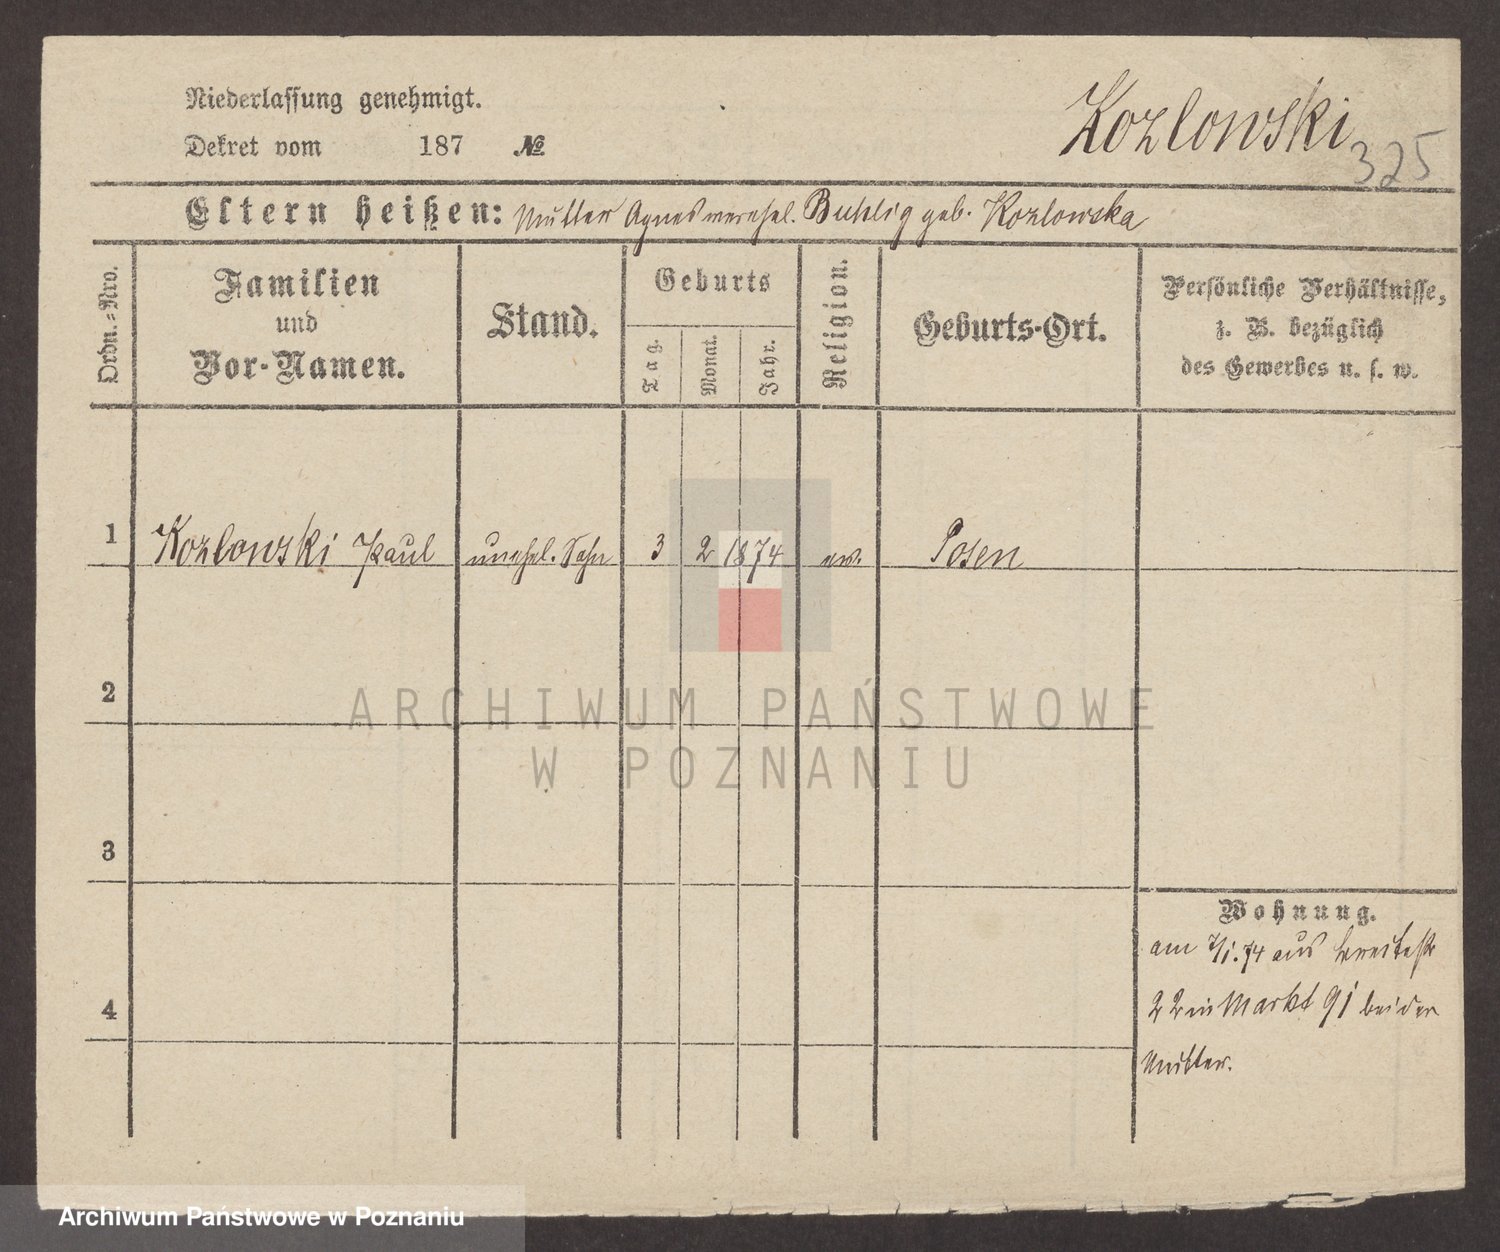 Niederlassung genehmigt.
Kozlowski
325
Dekret vom 187 №
Eltern heißen: Mutter Agnes verehel. Buhlig geb. Kozlowska
Ordn.-Nro.
Familien
und
Vor-Namen.
Stand.
Geburts
Tag.
Monat.
Jahr.
Religion.
Geburts-Ort.
Persönliche Verhältnisse,
z. B. bezüglich
des Gewerbes u. s. w.
1 Kozlowski Paul unehel. Sohn 3 2 1874 ev. Posen
2
ARCHIWUM PAŃSTWOWE
W POZNANIU
3
Wohnung.
am 7/1. 74 aus Breitestr
22 in Markt 91 bei der
4
Mutter.
Archiwum Państwowe w Poznaniu